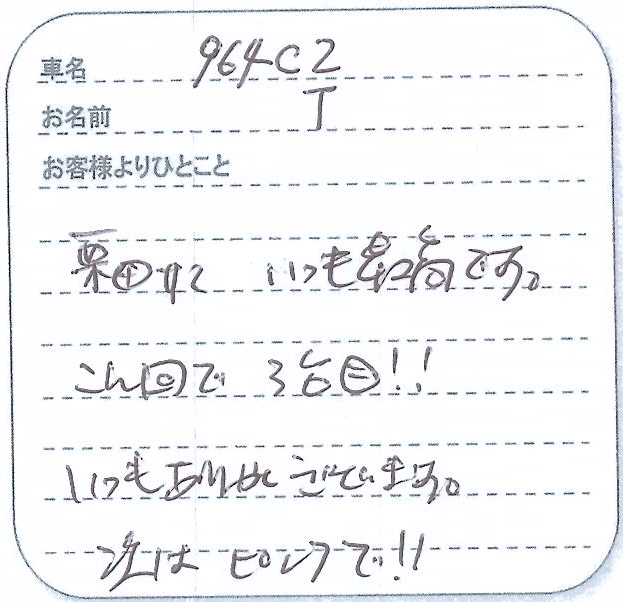 車名 964C2
お名前 T
お客様よりひとこと
栗田サン いつも綺麗です。
こん回で 3台目!!
いつもありがとうございます。
次は ピンクで!!